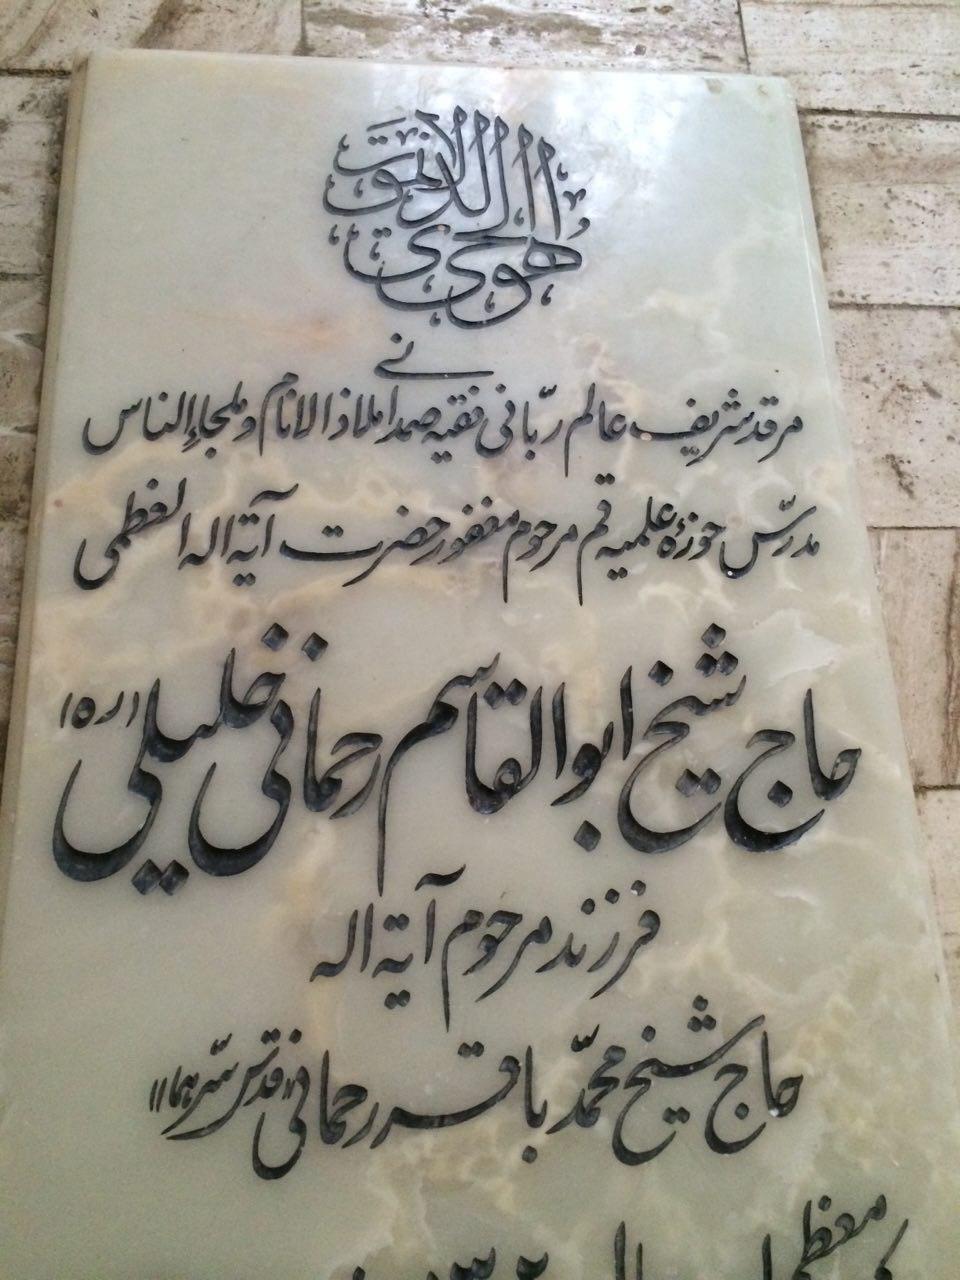 هو الحی الذی لایموت
مرقد شریف عالم ربّانی فقیه صمدانی ملاذ الانام و ملجاء الناس
مدرّس حوزهٔ علمیه قم مرحوم مغفور حضرت آیة اله العظمی
حاج شیخ ابوالقاسم رحمانی خلیلی (ره)
فرزند مرحوم آیة اله
حاج شیخ محمّد باقر رحمانی «قدّس سّرهما»